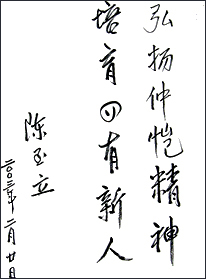 弘扬仲恺精神
培育四有新人
陈玉立
二〇〇三年二月廿日